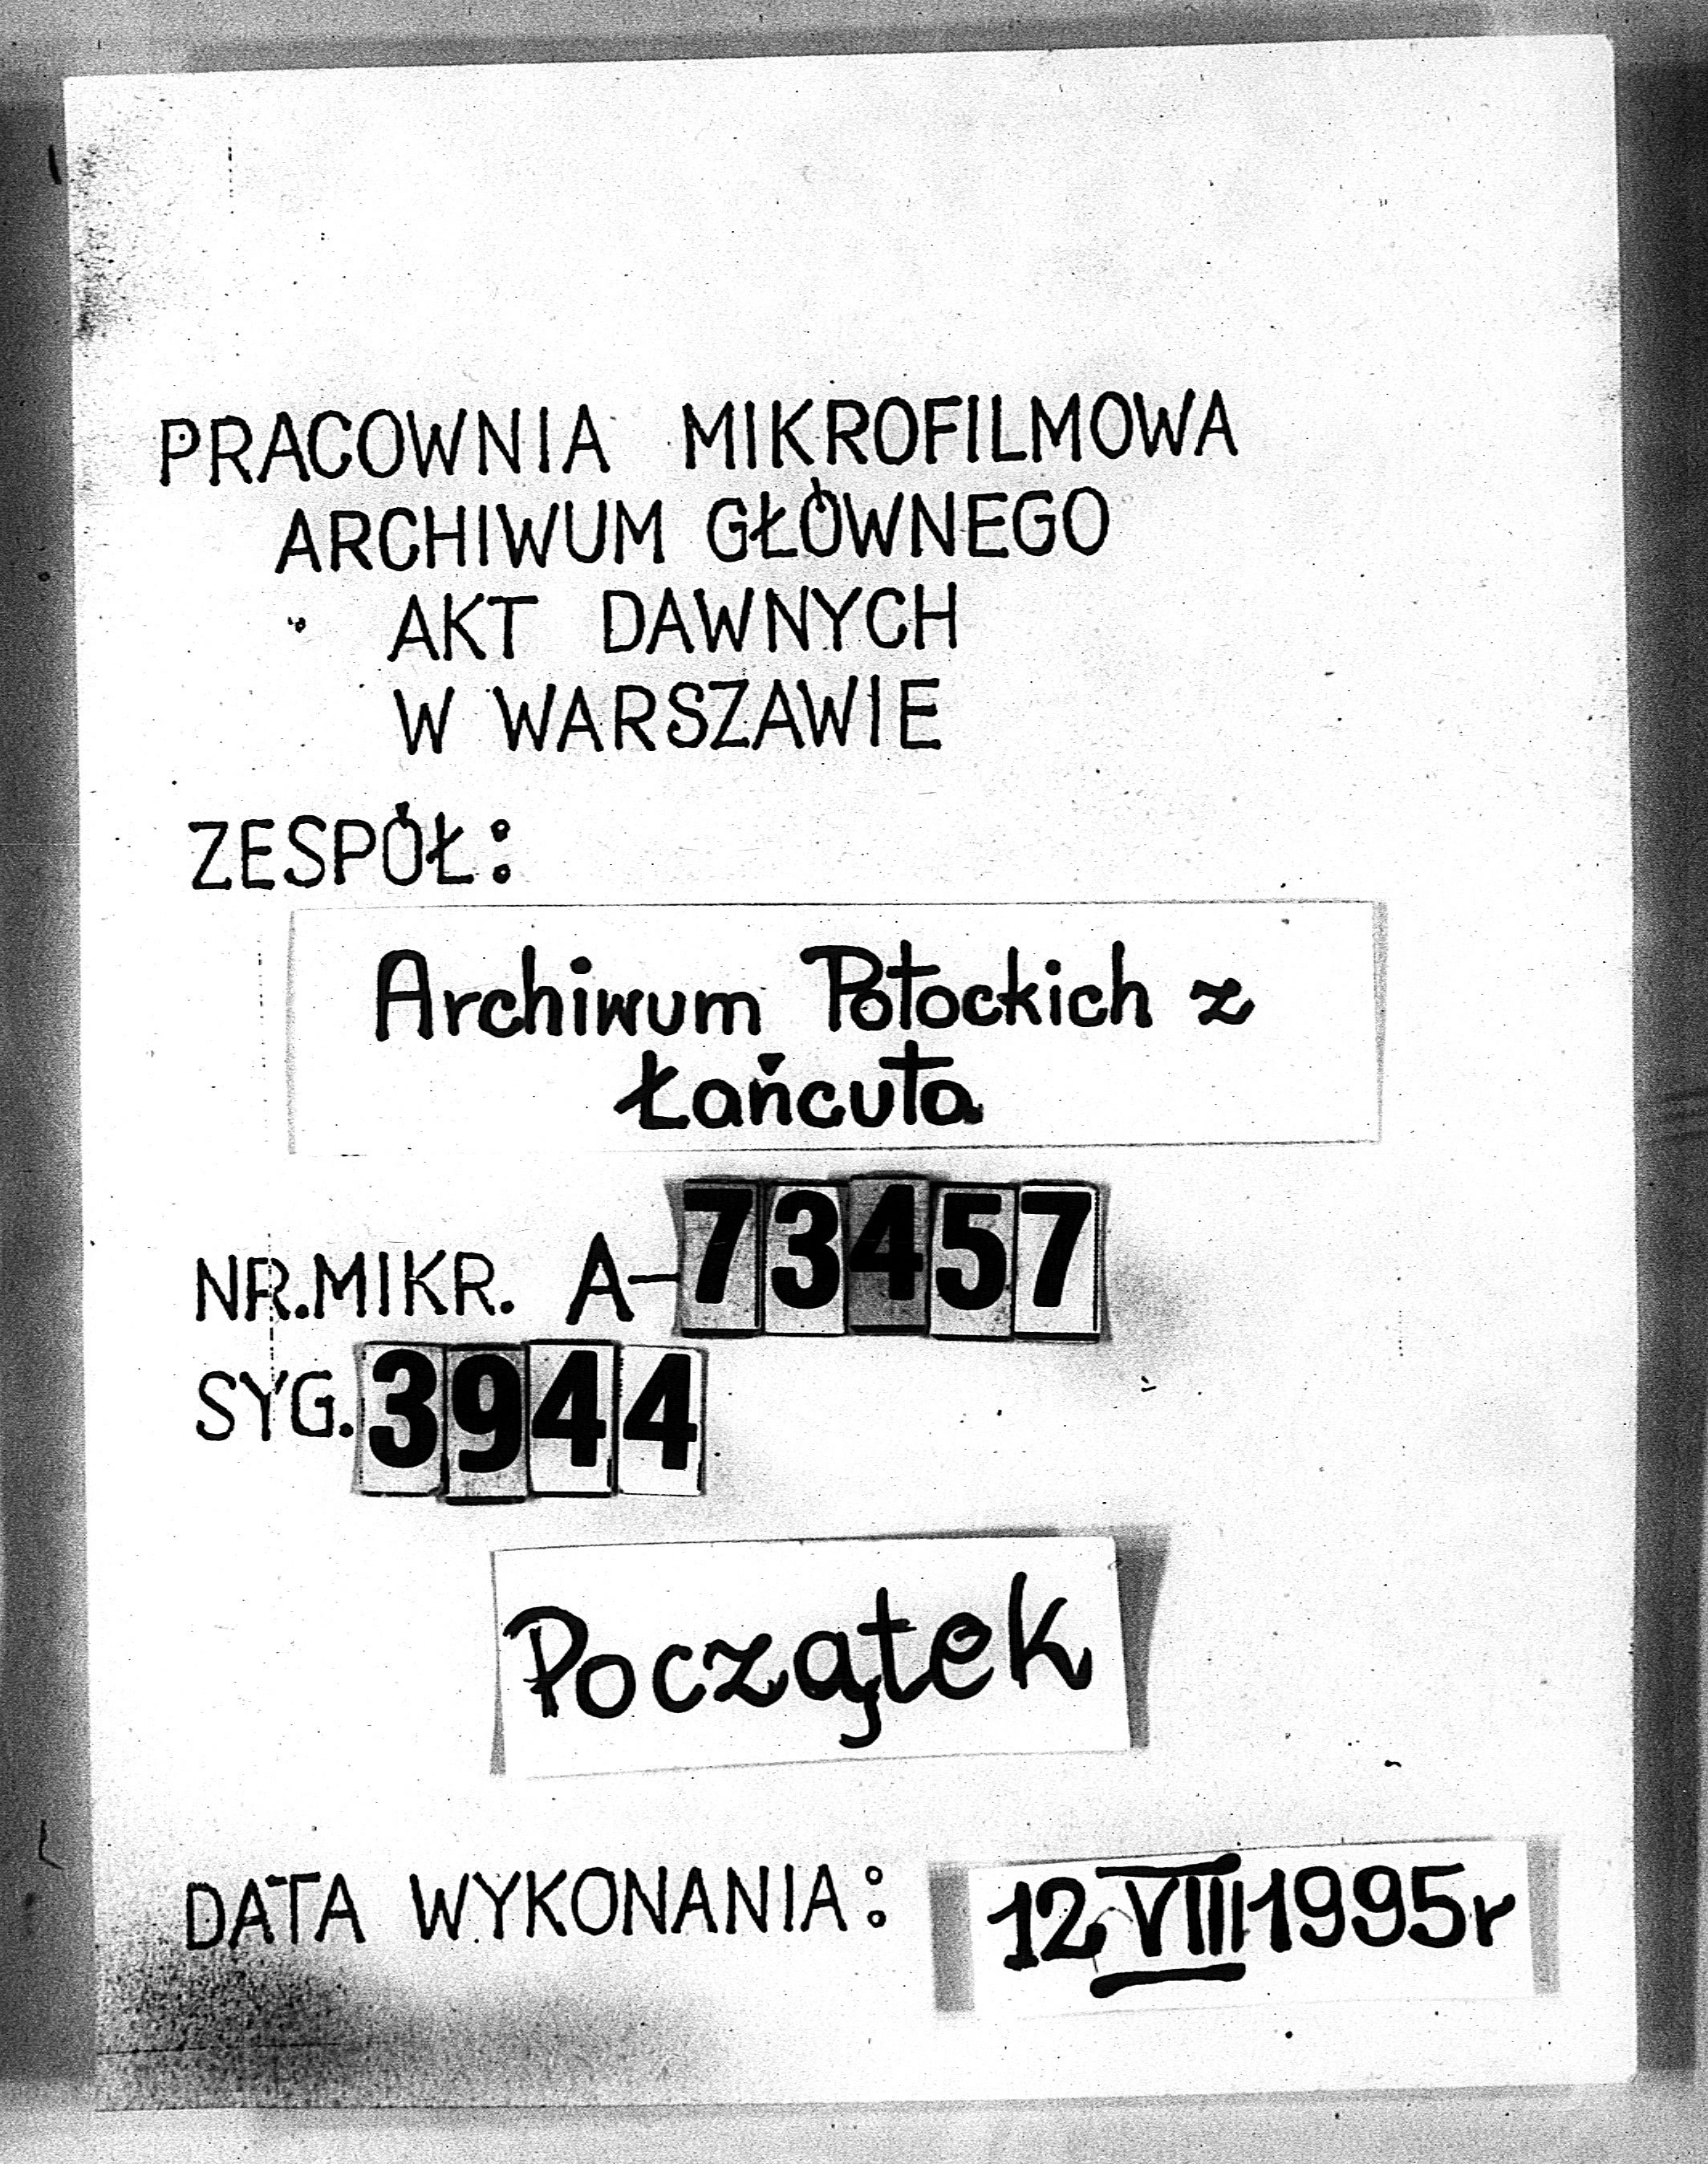 PRACOWNIA MIKROFILMOWA
ARCHIWUM GŁÓWNEGO
AKT DAWNYCH
W WARSZAWIE
ZESPÓŁ:
Archiwum Potockich z
Łańcuta
NR.MIKR. A-73457
SYG. 3944
Początek
DATA WYKONANIA: 12 VIII 1995r